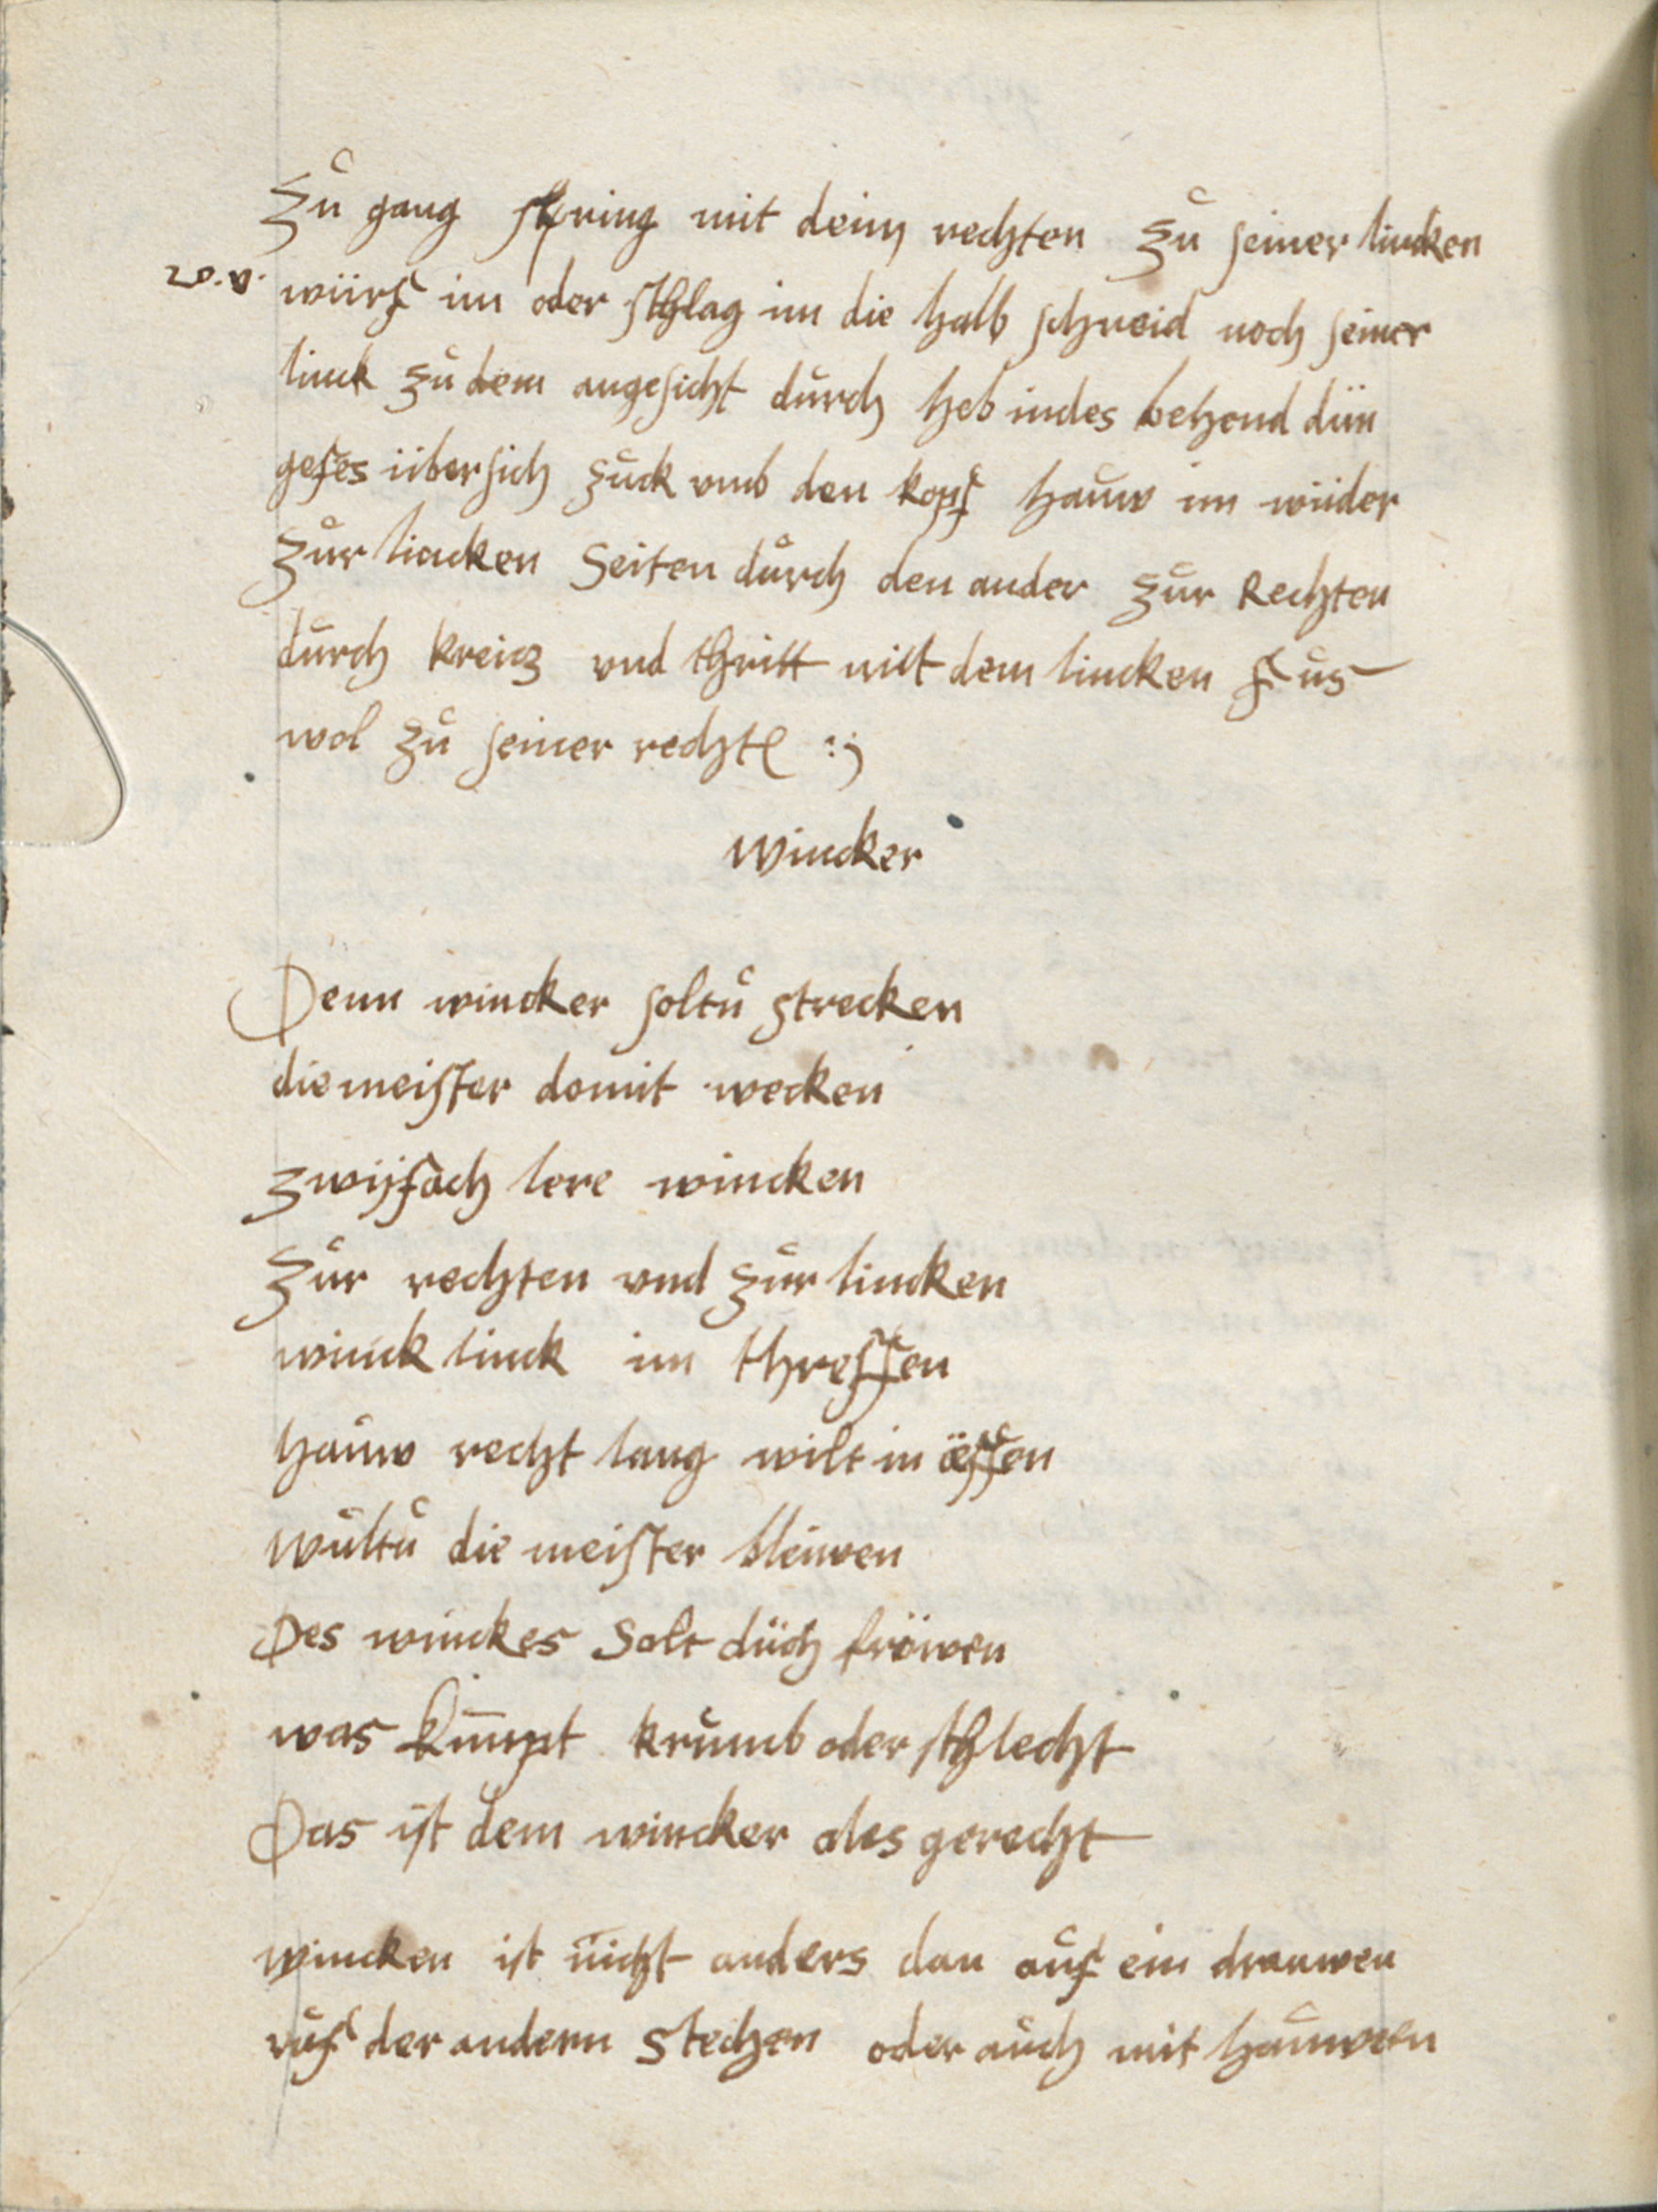 Zů gang spring mit deim rechten zů seiner lincken
20.v. würf im oder schlag im die halb schneid noch seiner
linck zů dem angesicht dürch heb indes behend din
gefes übersich zuck vmb den kopf hauw im wider
zůr lincken Seiten dürch den ander zůr Rechten
dürch kreicz vnd thritt mit dem lincken fůs
wol zů seiner rechte :)
Wincker
Denn wincker soltů strecken
die meister domit wecken
zwifach lere wincken
Zůr rechten vnd zůr lincken
winck linck im threffen
hauw recht lang wilt in äffen
Wůltů die meister bleiwen
Des winckes Solt düch fröwen
was kumpt krumb oder schlecht
Das ist dem wincker ales gerecht
wincken ist nicht anders dan auf ein drauwen
vf der andern Stechen oder auch mit hauwen